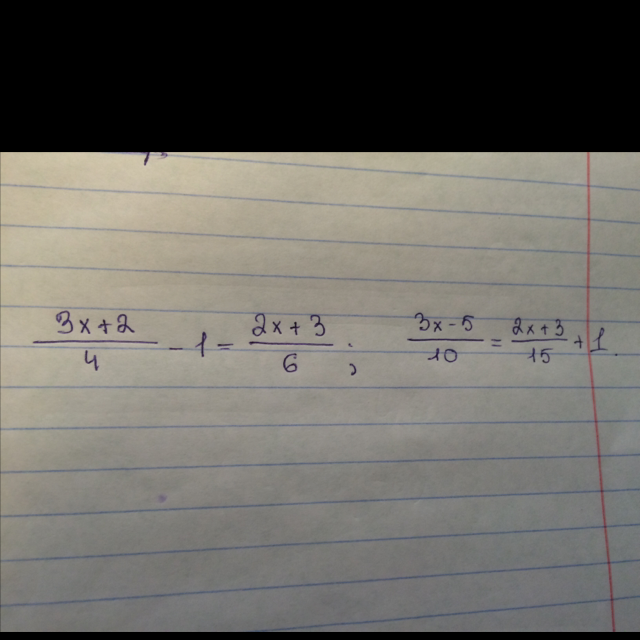 (3x+2)/4 - 1 = (2x+3)/6 ; (3x-5)/10 = (2x+3)/15 + 1.